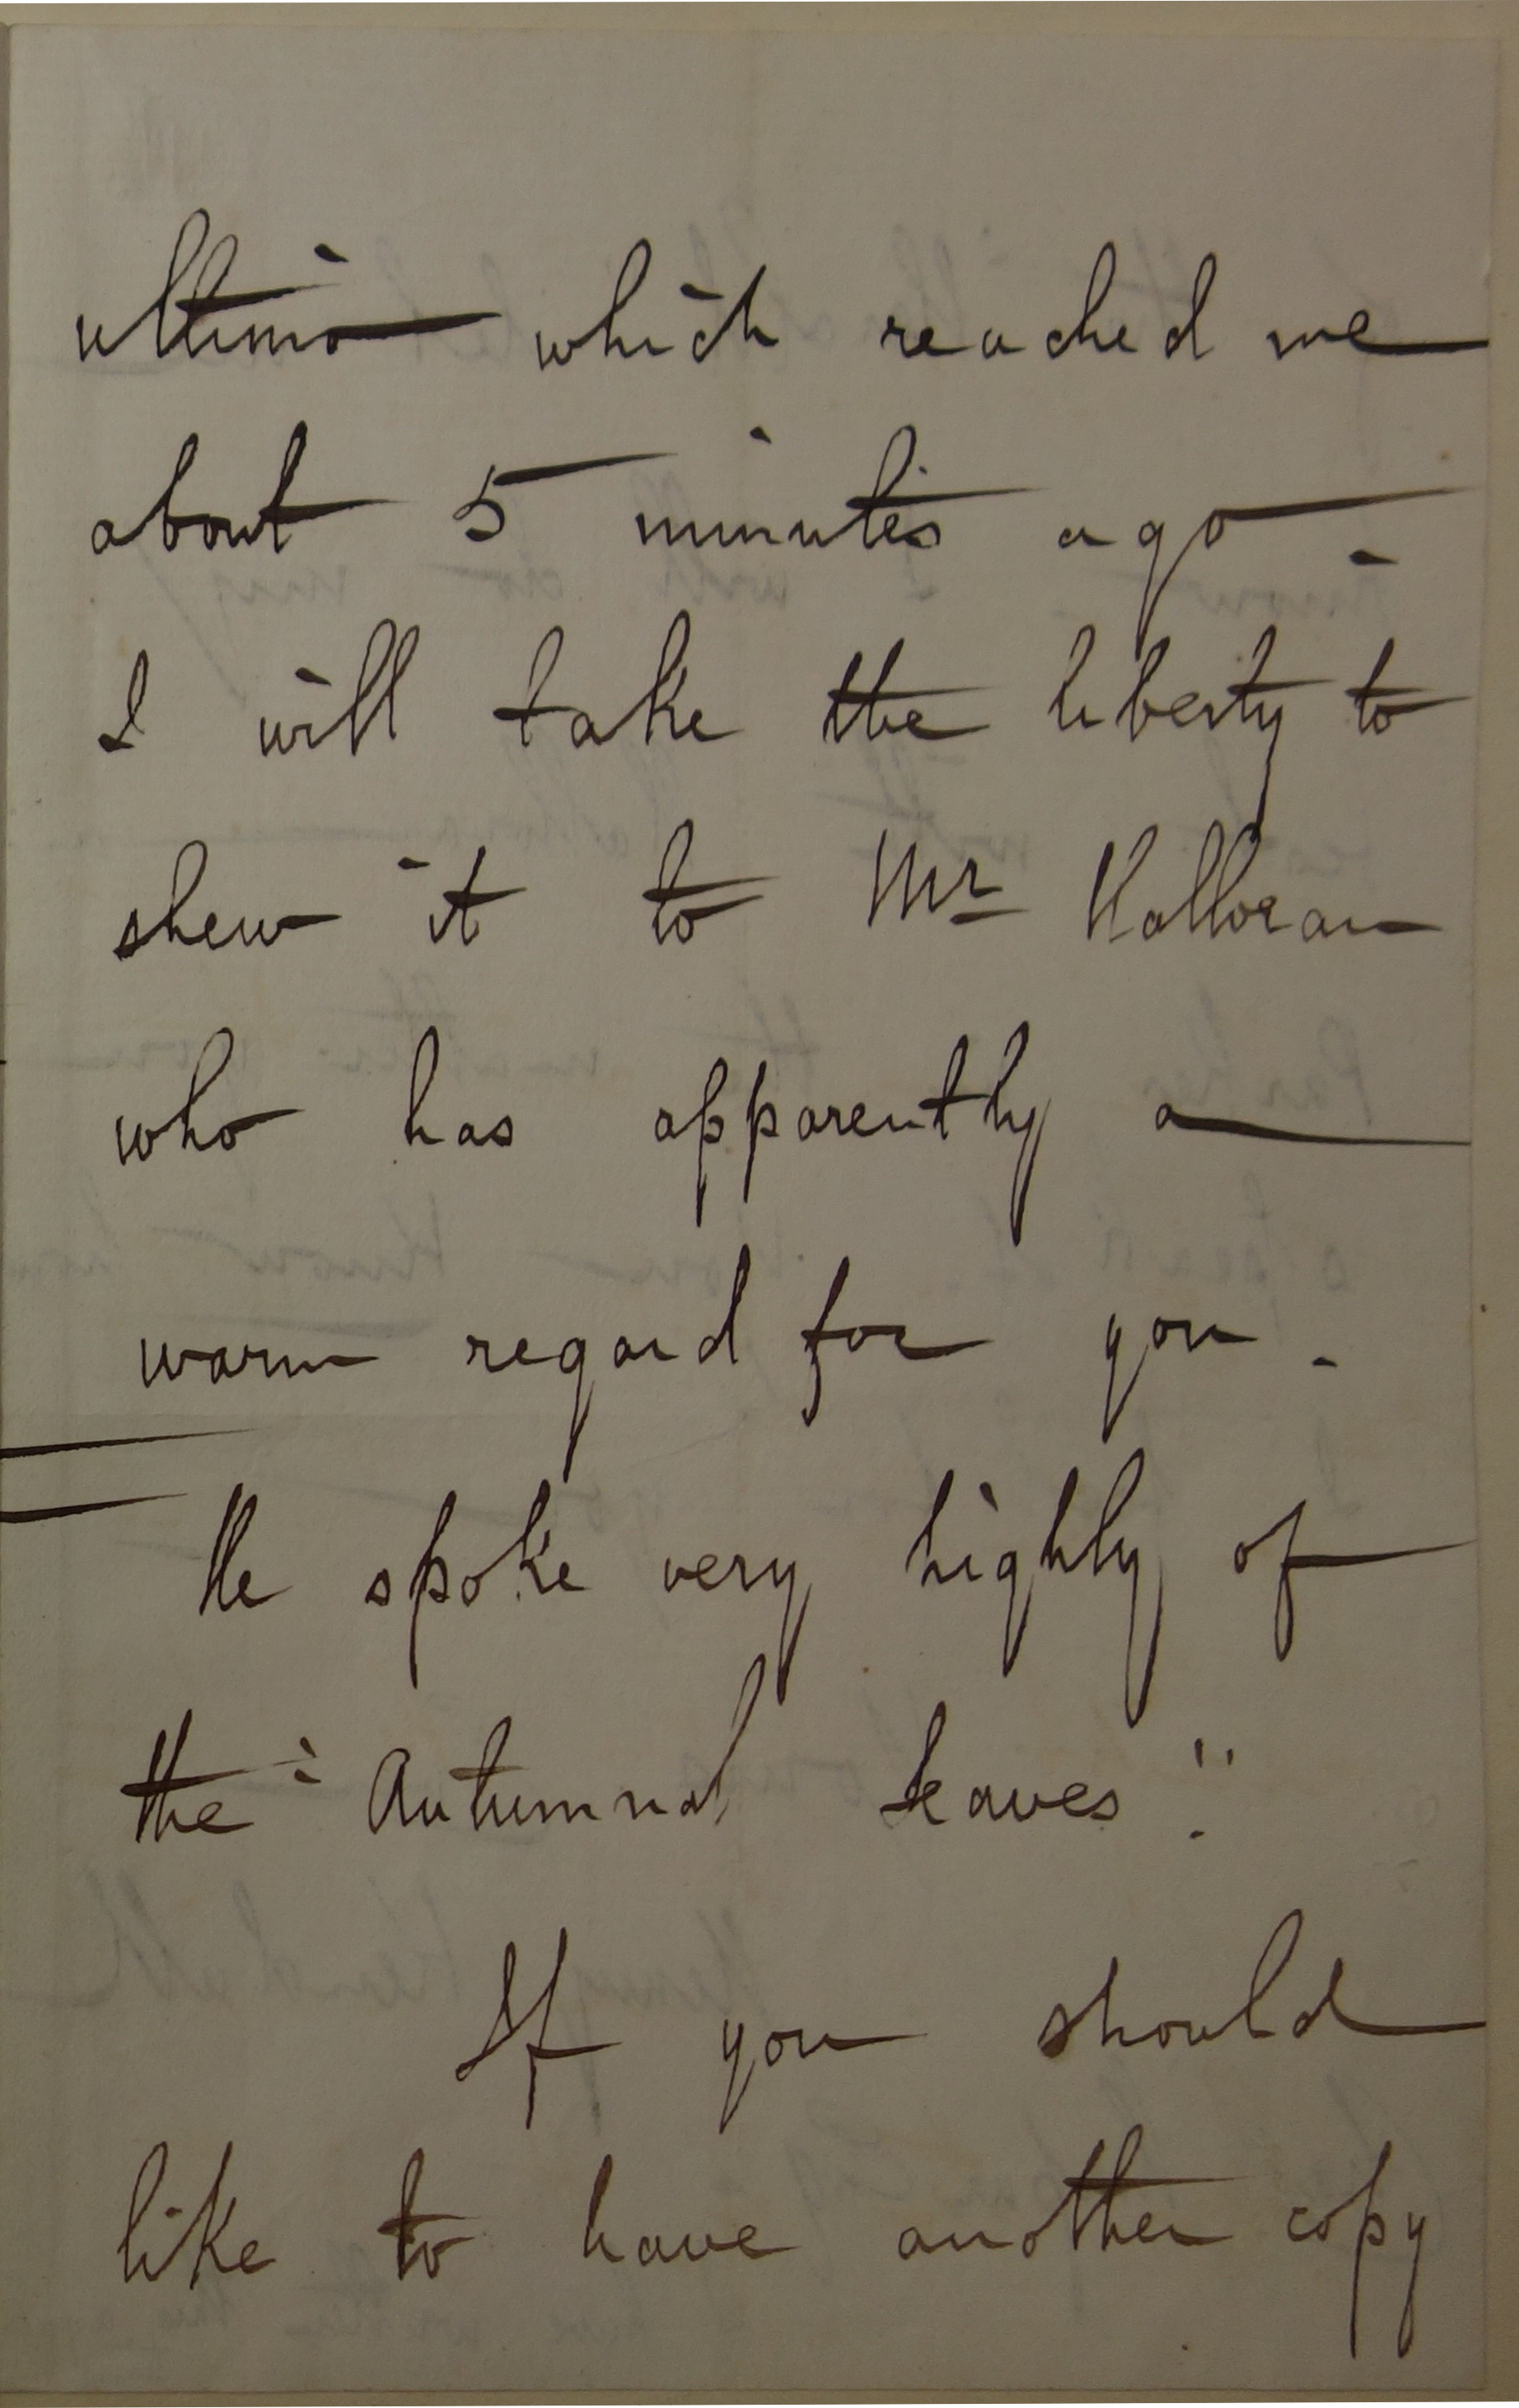 ultimo which reached me
about 5 minutes ago.
I will take the liberty to
shew it to Mr Halloran
who has apparently a
warm regard for you.
He spoke very highly of
the "Autumnal leaves".
If you should
like to have another copy